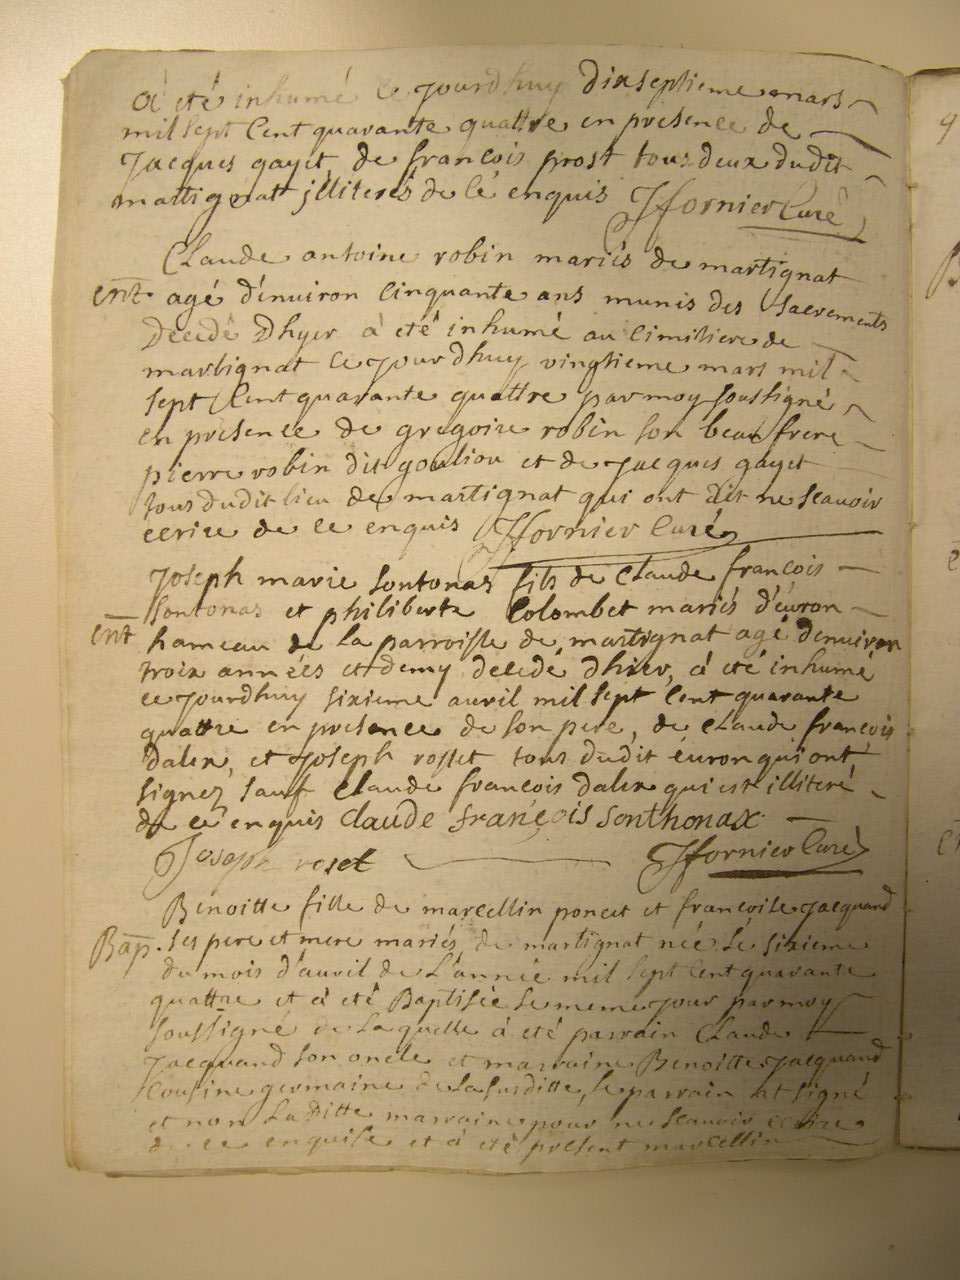 à été inhumé ce jourdhuy dixseptieme mars
mil sept cent quarante quattre en presence de
jacques gayet de francois prost tous deux dudit
martignat jlliterés de cé enquis JfFornier Curé
Claude antoine robin mariés de martignat
ent. agé d'enuiron cinquante ans munis des sacrements
Decedé Dhyer à été inhumé au cimitiere de
martignat ce jour dhuy vingtieme mars mil
sept cent quarante quattre par moy soussigné
en presence de gregoire robin son beau frere
pierre robin dit gouliou et de jacques gayet
tous dudit lieu de martignat qui ont dit ne scauoir
ecrire de ce enquis JfFornier Curé
Joseph marie sontonas fils de claude françois
sontonas et philiberte Colombet mariés d'éuron
ent hameau de la parroisse de martignat agé denuiron
troix années et demy decedé dhier, à été inhumé
ce jourdhuy sixieme auril mil sept cent quarante
quattre en presence de son pere, de claude francois
Dalex, et joseph rosset tous dudit éuron qui ont
signez sauf claude francois dalex qui est illiteré
de ce enquis Claude françois Sonthonax
Joseph roset JfFornier Curé
Benoitte fille de marcellin poncet et francoise jacquand
Bap. ses pere et mere mariés de martignat née le sixieme
du mois d'auril de l'année mil sept cent quarante
quattre et à été Baptisée le meme jour par moy
soussigné de laquelle à été parrain Claude
jacquand son oncle et marraine Benoitte jacquand
Cousine germaine de la susditte, le parrain at signé
et non laditte marraine pour ne scauoir ecrire
de ce enquise et à été present marcellin